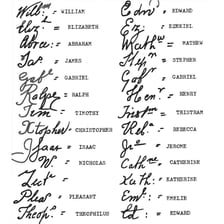 Willm: = WILLIAM
Eliz: = ELIZABETH
Abra: = ABRAHAM
Ja: = JAMES
Gabr: = GABRIEL
Ralpe = RALPH
Tim: = TIMOTHY
Xtopher = CHRISTOPHER
Isaac = ISAAC
N: = NICHOLAS
Pleas = PLEASANT
Theop: = THEOPHILUS
Edw: = EDWARD
Ez: = EZEKIEL
Math: = MATHEW
Step = STEPHEN
Gab: = GABRIEL
Hen: = HENRY
Trist = TRISTRAM
Reb: = REBECCA
Je = JEROME
Cath: = CATHERINE
Kath: = KATHERINE
Em: = EMELIE
Ed: = EDWARD